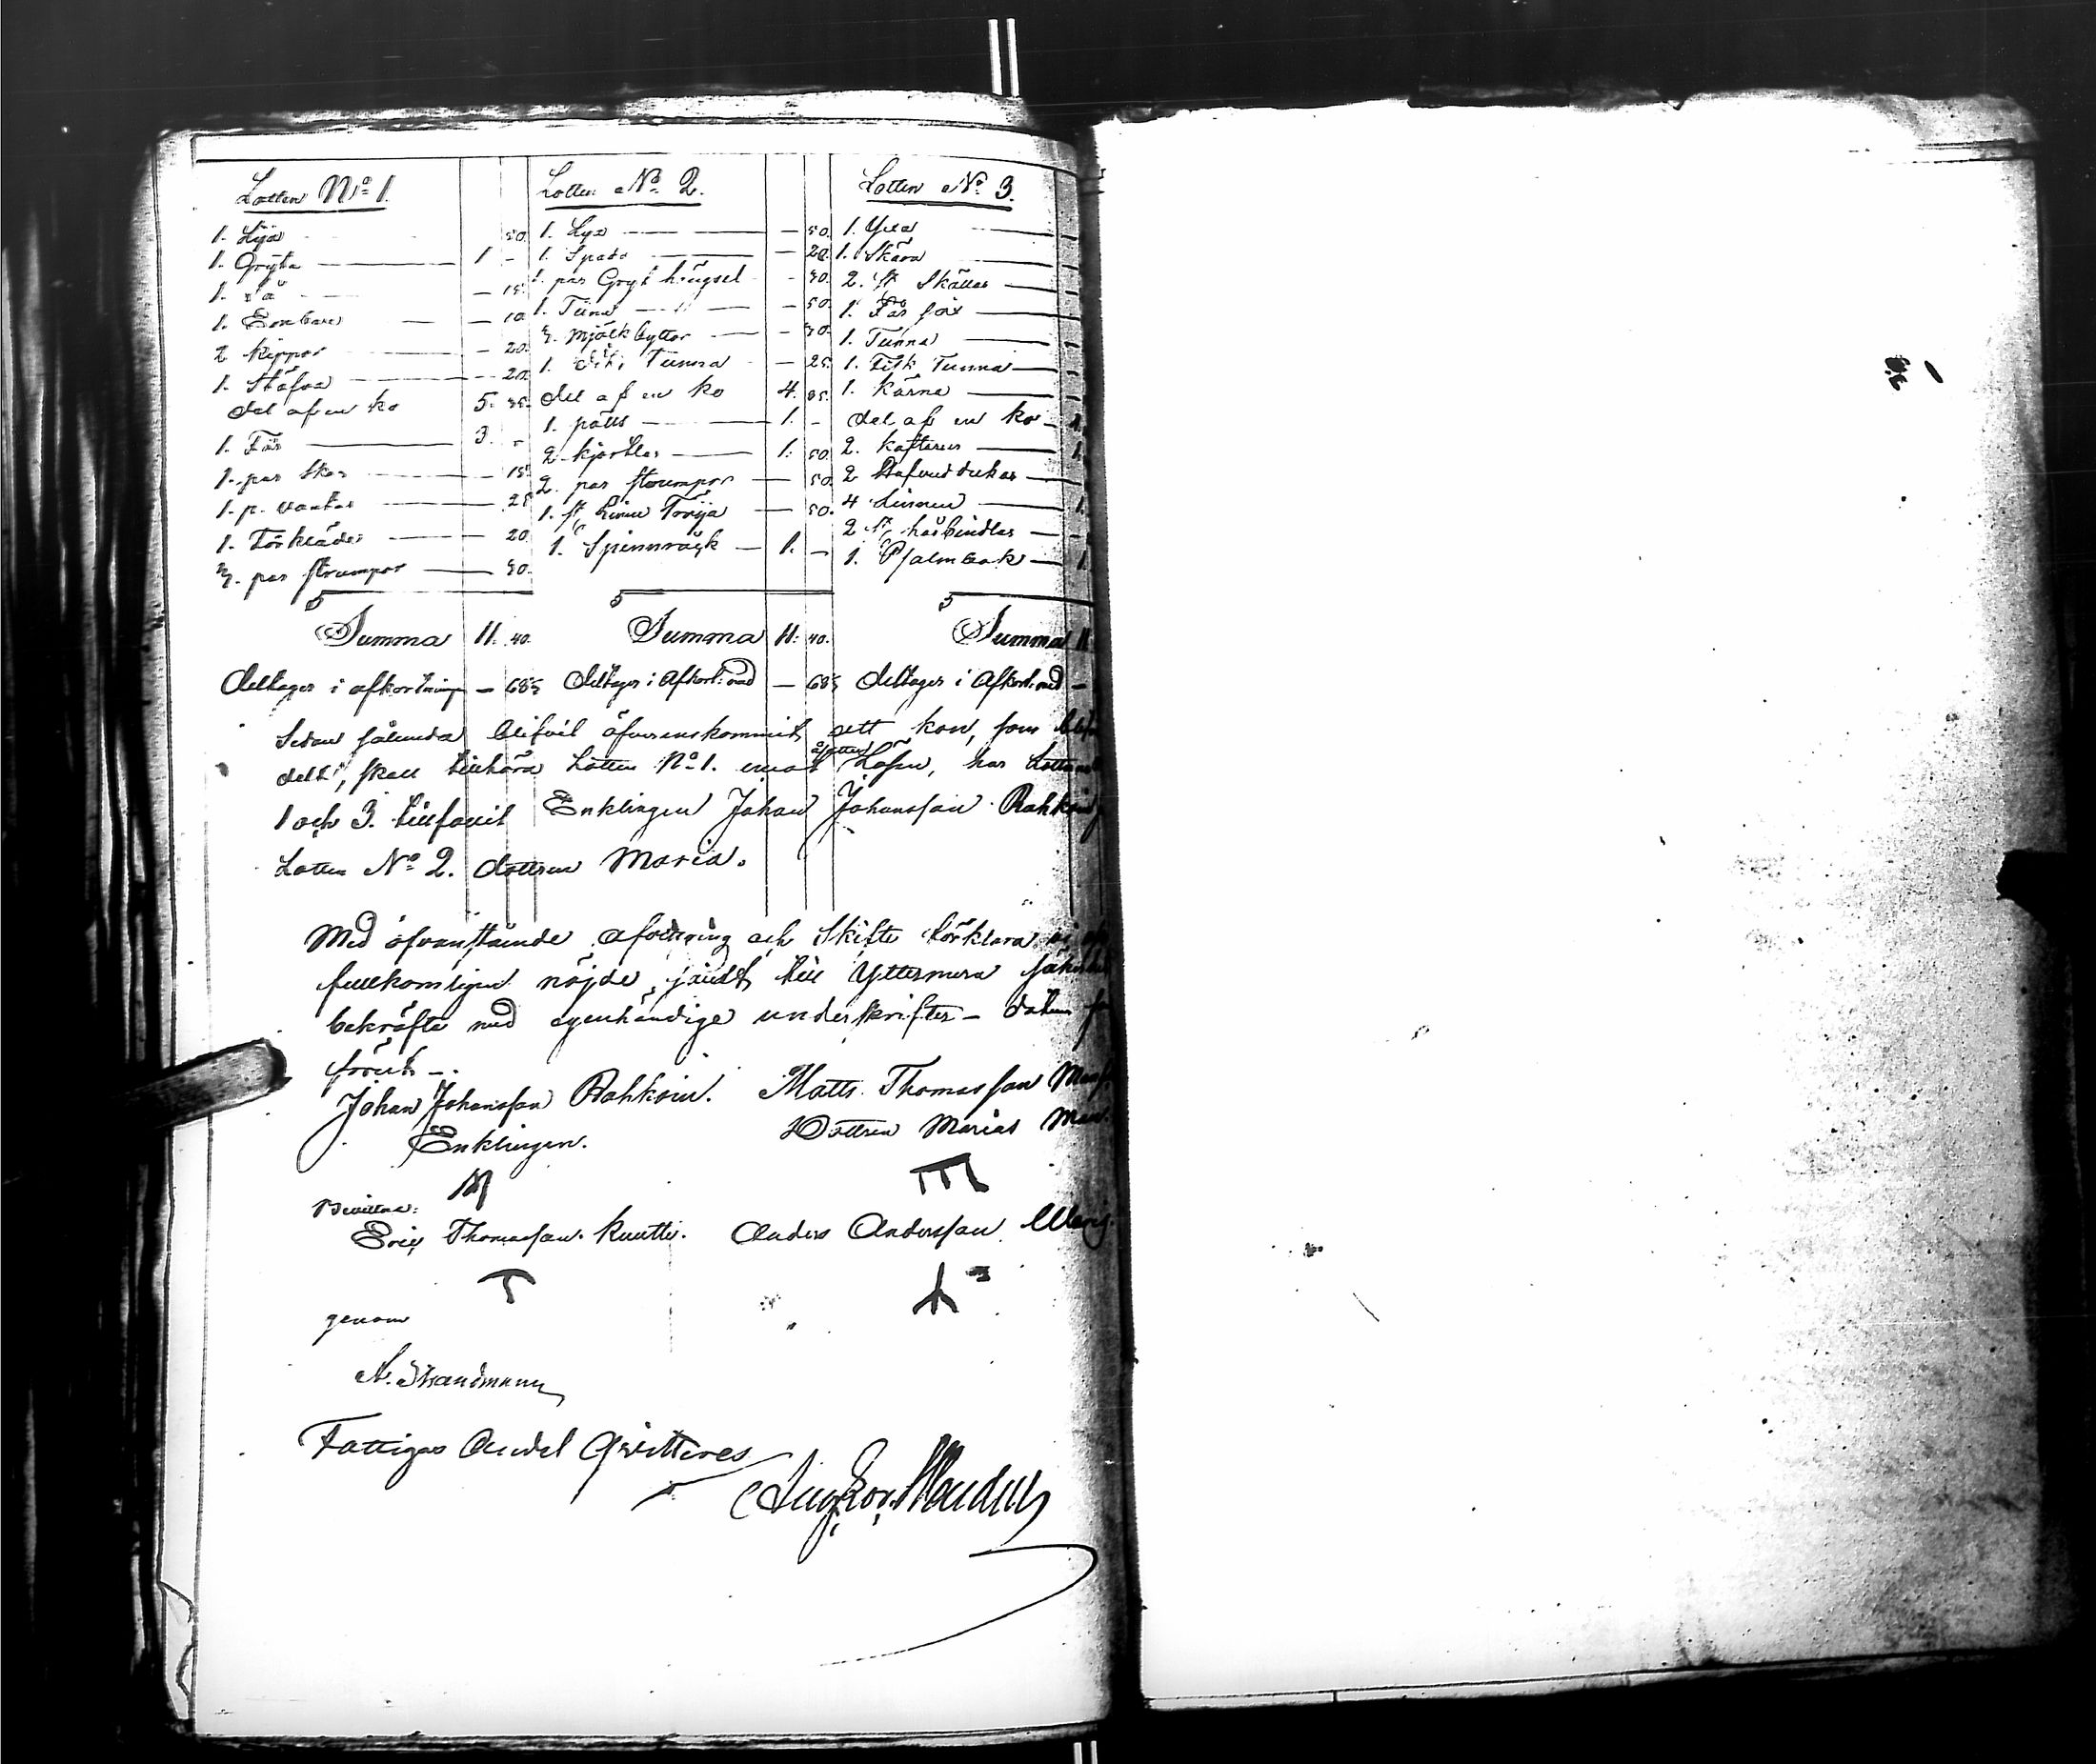 Lotten No 1.
1. Lya 50.
1. Gryta 1 -
1. Så - 15.
1. Embare - 10.
2 kippor - 20.
1. Stäfva - 20.
del af en ko 5. 35.
1. Får 3. -
1. par skor - 15.
1. p. vantar - 25
1. Förkläde - 20
3. par strumpor - 30.
Summa 11. 40.
deltager i afkortning - 68 5/7
Lotten No 2.
1. Lya - 50.
1. Spada - 20.
1. par Gryt hängsel - 30.
1. Tüna - 50.
3. mjölkbyttor - 30.
1. Tunna - 25.
del af en ko 4. 85.
1. pälts 1. -
2 kjortlar 1. 50.
2. par strumpor - 50.
1. st. Linne Tröja - 50.
1. Spinnråck 1. -
Summa 11. 40.
deltager i Afkort: med - 68 5/7
Lotten No 3.
1.
1. Skära
2. st Skällor
1. Får sax
1. Tünna
1. Fisk Tunna
1. kärna
del af en ko
2. koftarer
2 Hufvud dukar
4 Linnen 1.
2 st. hårbindlar
1. Psalmbok 1.
Summa 11
deltager i Afkort: med -
Sedan sålunda blifvit öfverenskommit att kon, som
delt, skall tillhöra Lotten No 1. emot åsatten Lösen, har
1 och 3. tillfallit Enklingen Johan Johansson Rahkoin
Lotten No 2. dottren Maria.
Med ofvanstående afvittring och Skifte förklara
fullkomligen nöjde, samt till Yttermera
bekräfte med egenhändige underskrifter - datum
förut -.
Johan Johansson Rahkoin. Matts Thomasson
Enklingen. Dottren Marias Man.
Bevittna:
Eric Thomasson kuutti. Anders Andersson
genom
N. Strandmann
Fattigas Andel Qvitteres